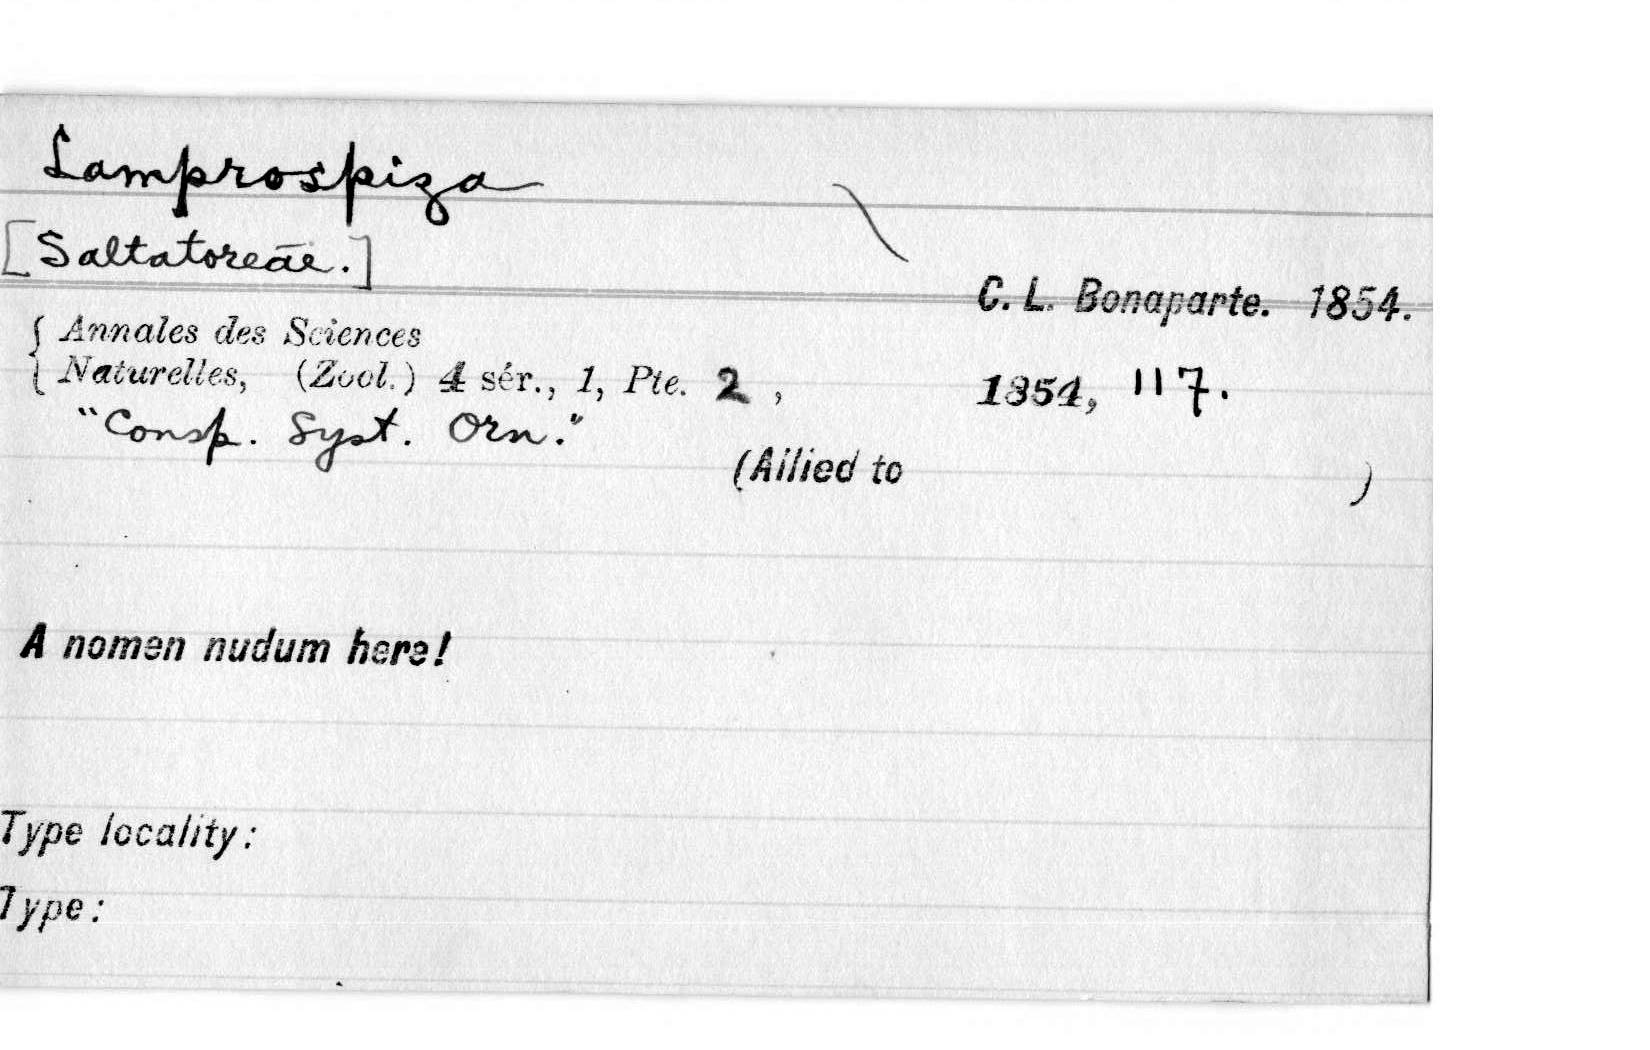 Lamprospiza
[Saltatoreae.]
C. L. Bonaparte. 1854.
{ Annales des Sciences
Naturelles, (Zool.) 4 sér., 1, Pte. 2 , 1854, 117.
"Consp. Syst. Orn."
(Allied to )
A nomen nudum here!
Type locality:
Type: